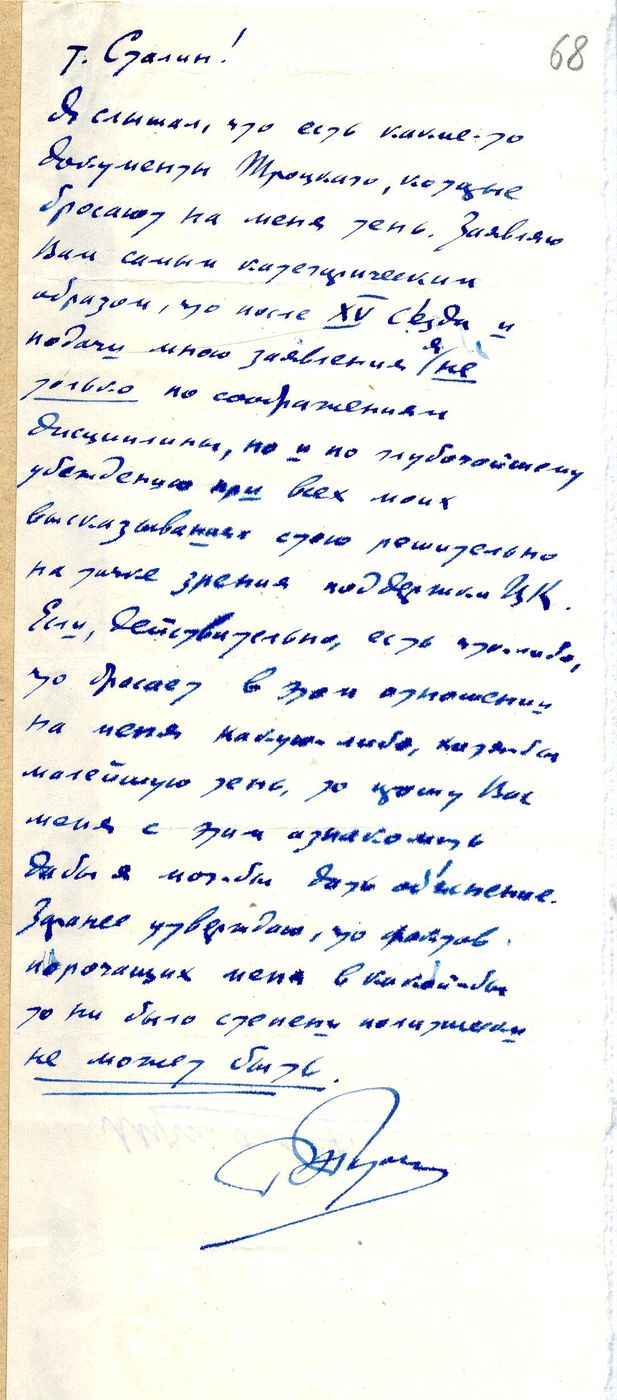 68
т. Сталин!
Я слышал, что есть какие-то
документы Троцкаго, которые
бросают на меня тень. Заявляю
Вам самым категорическим
образом, что после XV с'езда и
подачи мною заявления я не
только по соображениям
дисциплины, но и по глубочайшему
убеждению при всех моих
высказываниях стою решительно
на точке зрения поддержки ЦК.
Если, действительно, есть что-либо,
что бросает в этом отношении
на меня какую-либо, хотя-бы
малейшую тень, то прошу Вас
меня с этим ознакомить
дабы я мог-бы дать об'яснение.
Заранее утверждаю, что фактов
порочащих меня в какой-бы
то ни было степени политически
не может быть.